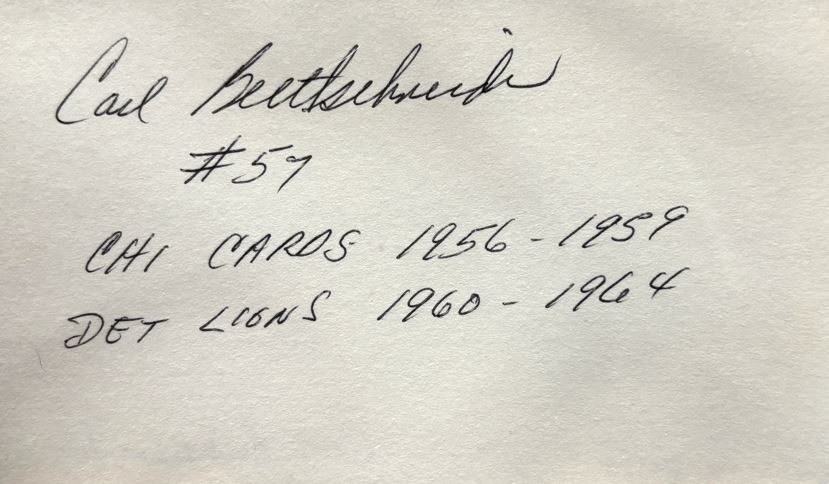 Carl Brettschneider
#57
CHI CARDS 1956-1959
DET LIONS 1960-1964